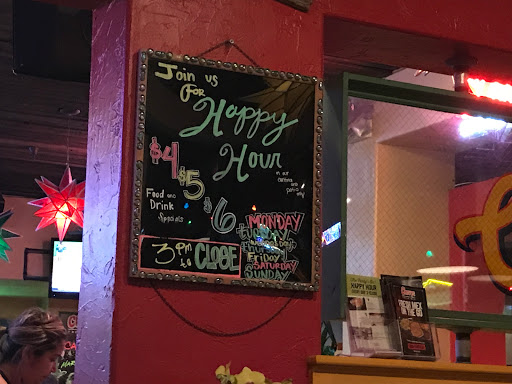 Join us
FOR
Happy
Hour
in our
cantina and
patio only
$4
$5
$6
Food and
Drink
Specials
MONDAY
tuesday
Wednesday
thursday
Friday
SATURDAY
SUNDAY
3pm to CLOSE
HAPPY HOUR